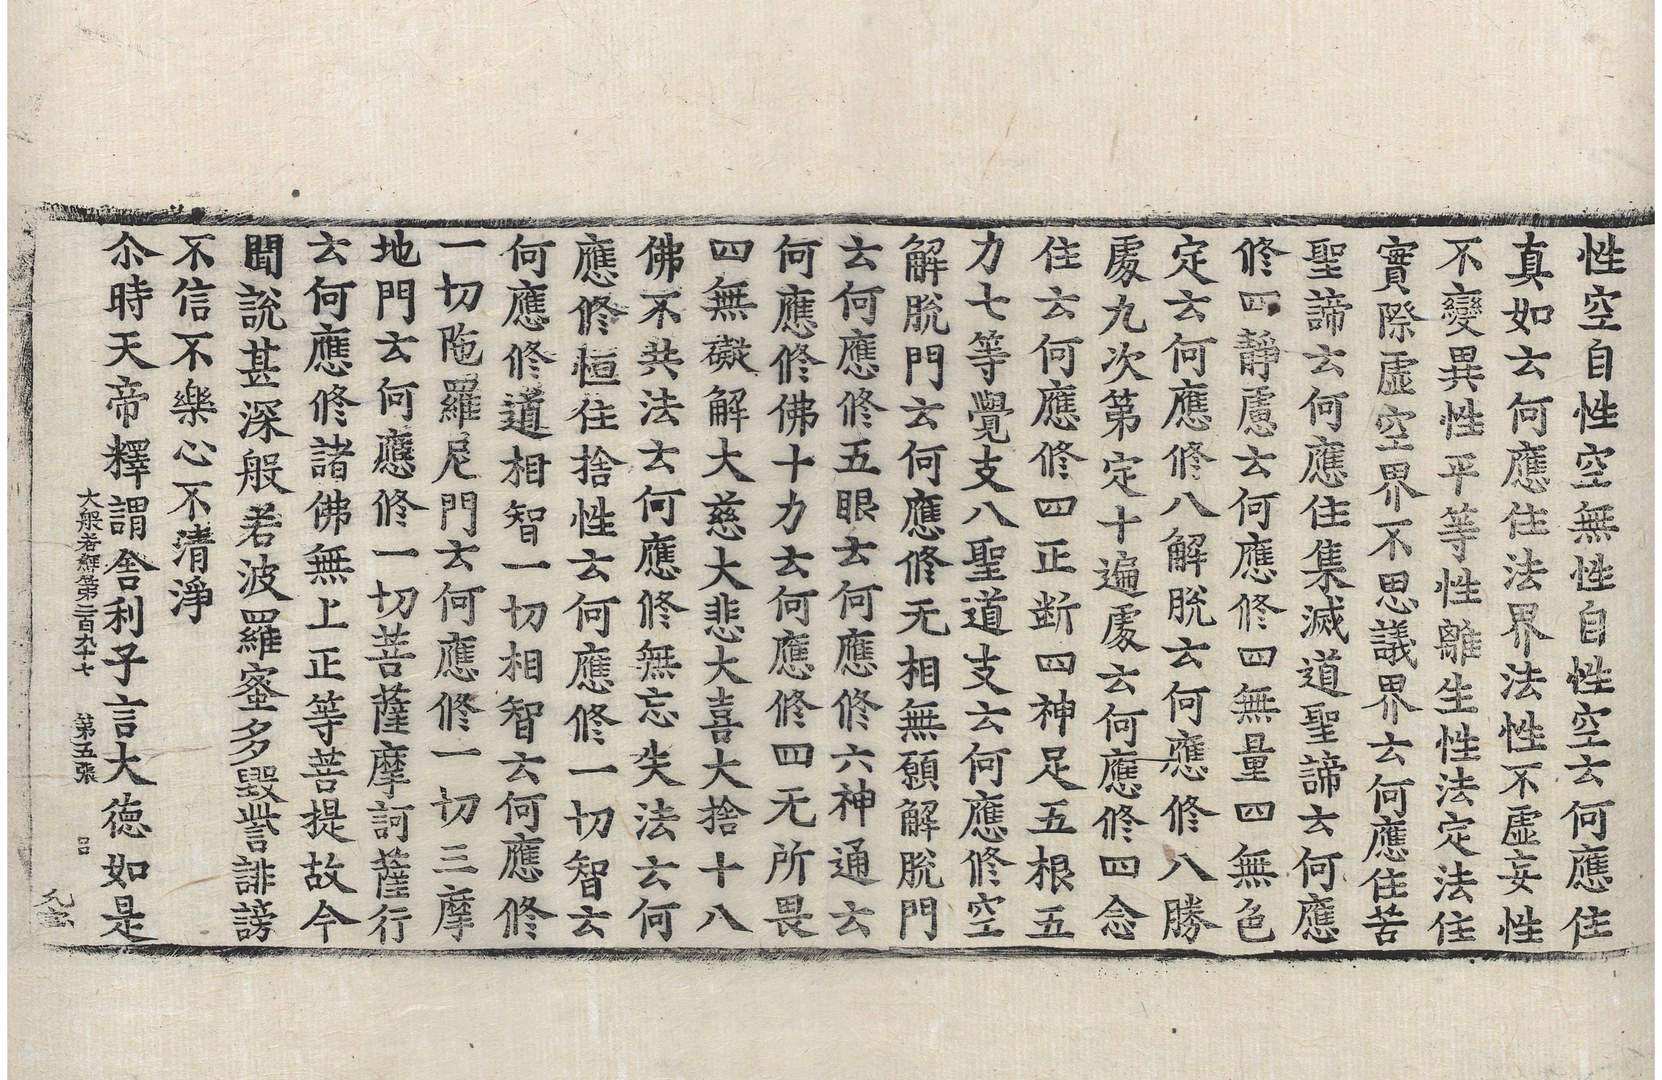 性空自性空無性自性空云何應住
真如云何應住法界法性不虛妄性
不變異性平等性離生性法定法住
實際虛空界不思議界云何應住苦
聖諦云何應住集滅道聖諦云何應
修四靜慮云何應修四無量四無色
定云何應修八解脫云何應修八勝
處九次第定十遍處云何應修四念
住云何應修四正斷四神足五根五
力七等覺支八聖道支云何應修空
解脫門云何應修无相無願解脫門
云何應修五眼云何應修六神通云
何應修佛十力云何應修四无所畏
四無礙解大慈大悲大喜大捨十八
佛不共法云何應修無忘失法云何
應修恒住捨性云何應修一切智云
何應修道相智一切相智云何應修
一切陁羅尼門云何應修一切三摩
地門云何應修一切菩薩摩訶薩行
云何應修諸佛無上正等菩提故今
聞說甚深般若波羅蜜多毀訾誹謗
不信不樂心不清淨
尒時天帝釋謂舍利子言大德如是
大般若經第二百九十七 第五張 呂